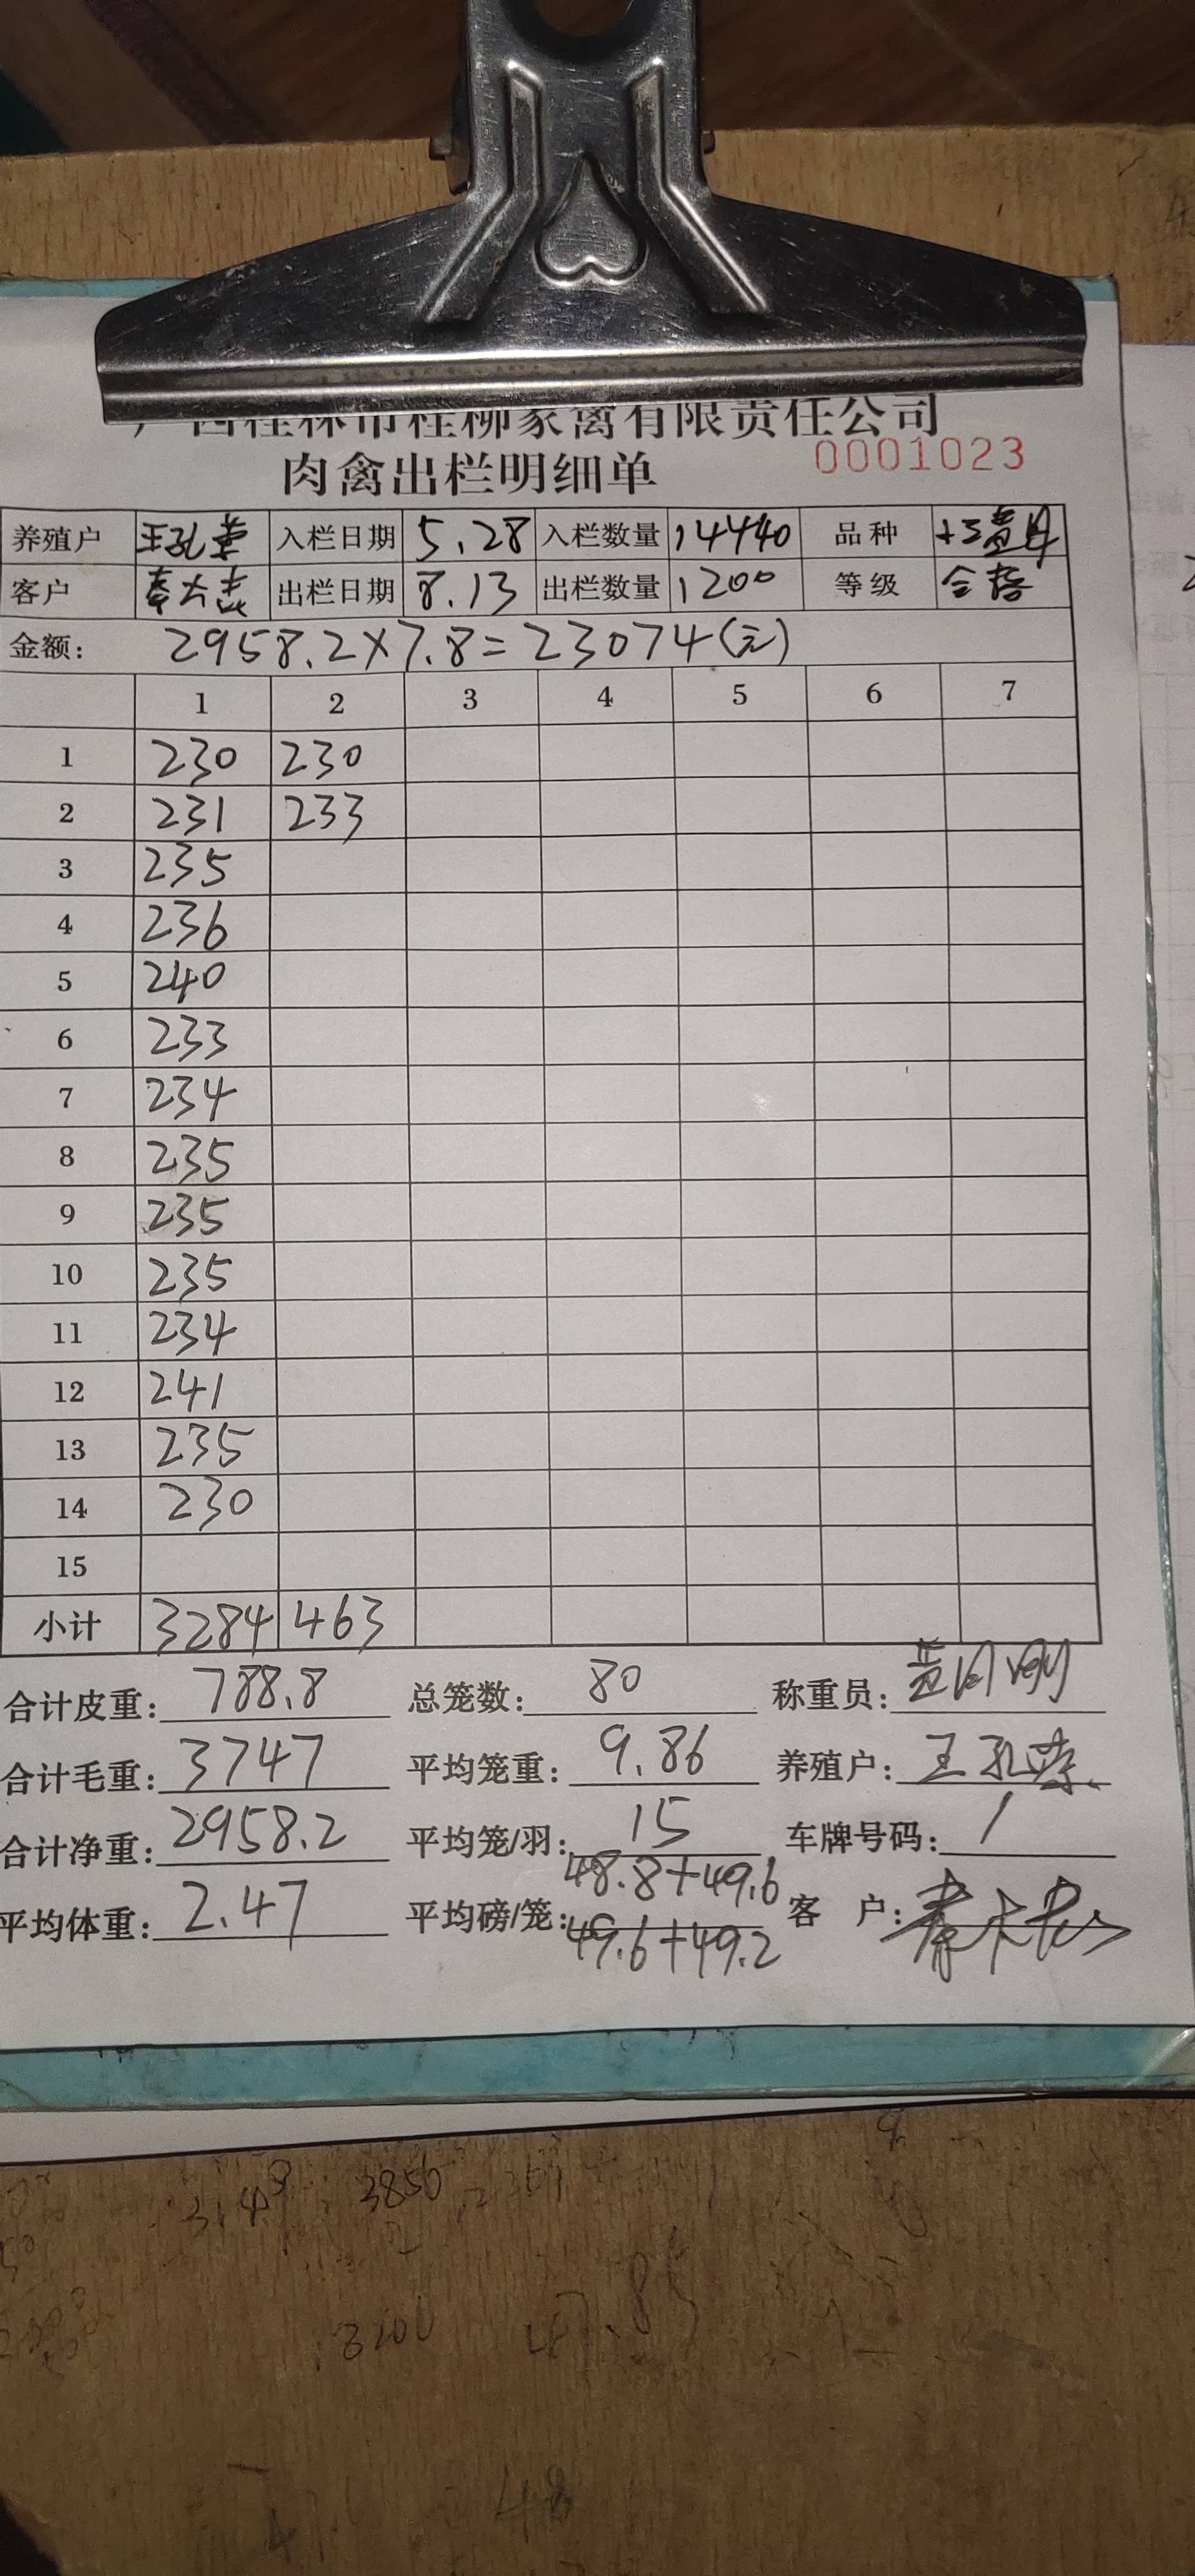 广西桂林市桂柳家禽有限责任公司
肉禽出栏明细单 0001023
养殖户 王孔荣 入栏日期 5.28 入栏数量 14440 品种 土三黄母
客户 秦大志 出栏日期 8.13 出栏数量 1200 等级 合格
金额: 2958.2×7.8=23074(元)
1 2 3 4 5 6 7
1 230 230
2 231 233
3 235
4 236
5 240
6 233
7 234
8 235
9 235
10 235
11 234
12 241
13 235
14 230
15
小计 3284 463
合计皮重: 788.8 总笼数: 80 称重员:
合计毛重: 3747 平均笼重: 9.86 养殖户: 王孔荣
合计净重: 2958.2 平均笼/羽: 15 车牌号码: /
48.8+49.6
平均体重: 2.47 平均磅/笼: 客 户:
49.6+49.2
3850
3200
48